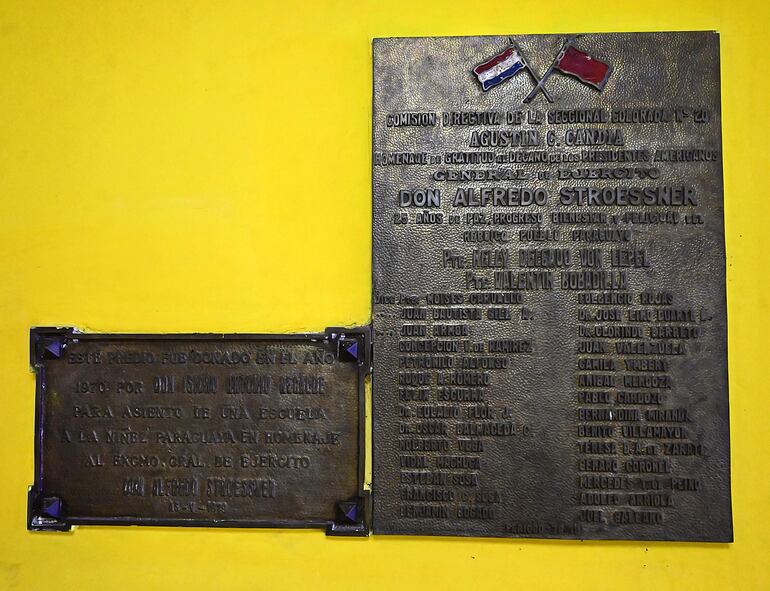 ESTE PREDIO FUE DONADO EN EL AÑO
1970 POR DON ISIDRO ANTONIO
PARA ASIENTO DE UNA ESCUELA
A LA NIÑEZ PARAGUAYA EN HOMENAJE
AL EXCMO. GRAL. DE EJERCITO
DON ALFREDO STROESSNER
COMISION DIRECTIVA DE LA SECCIONAL COLORADA Nº 20
AGUSTIN C. CANDIA
HOMENAJE DE GRATITUD AL DECANO DE LOS PRESIDENTES AMERICANOS
GENERAL DE EJERCITO
DON ALFREDO STROESSNER
25 AÑOS DE PAZ PROGRESO BIENESTAR Y FELICIDAD DEL
HEROICO PUEBLO PARAGUAYO
PTE. NELLY DELGADO VON LEPEL
PTE. VALENTIN BOBADILLA
MOISES CARVALLO
JUAN BAUTISTA GILL A.
JUAN
CONCEPCION DE RAMIREZ
PETRONILO ALFONSO
ROQUE M. ROMERO
FELIX ESCURRA
DR. EULALIO FLOR J.
DR. OSCAR BALMACEDA C.
NOLBERTO VEGA
VIDAL MACHUCA
ESTEBAN SOSA
FRANCISCO C. SOSA
BENJAMIN BOGADO
FULGENCIO ROJAS
DR. JOSE DUARTE L.
DR. CLORINDO BERNETO
JUAN VALENZUELA
CAMILA YMBERT
ANIBAL MENDOZA
PABLO CARDOZO
BERNARDINA MIRANDA
BENITO VILLAMAYOR
TERESA D. A. DE ZARATE
GENARO CORONEL
MERCEDES T. DE PEINO
ADOLFO ARRIOLA
JOEL GALEANO
PERIODO